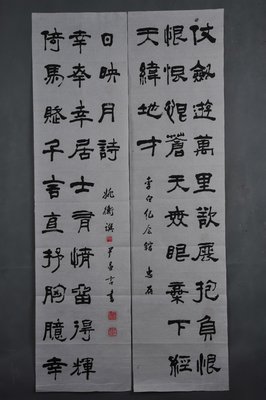 仗劍遊萬里欲展抱負恨
恨恨蒼天眼棄下經
天緯地才
李白紀念館 惠存
倚馬賦千言直抒胸臆幸
幸幸居士有情留得輝
日映月詩
姚衡撰
書